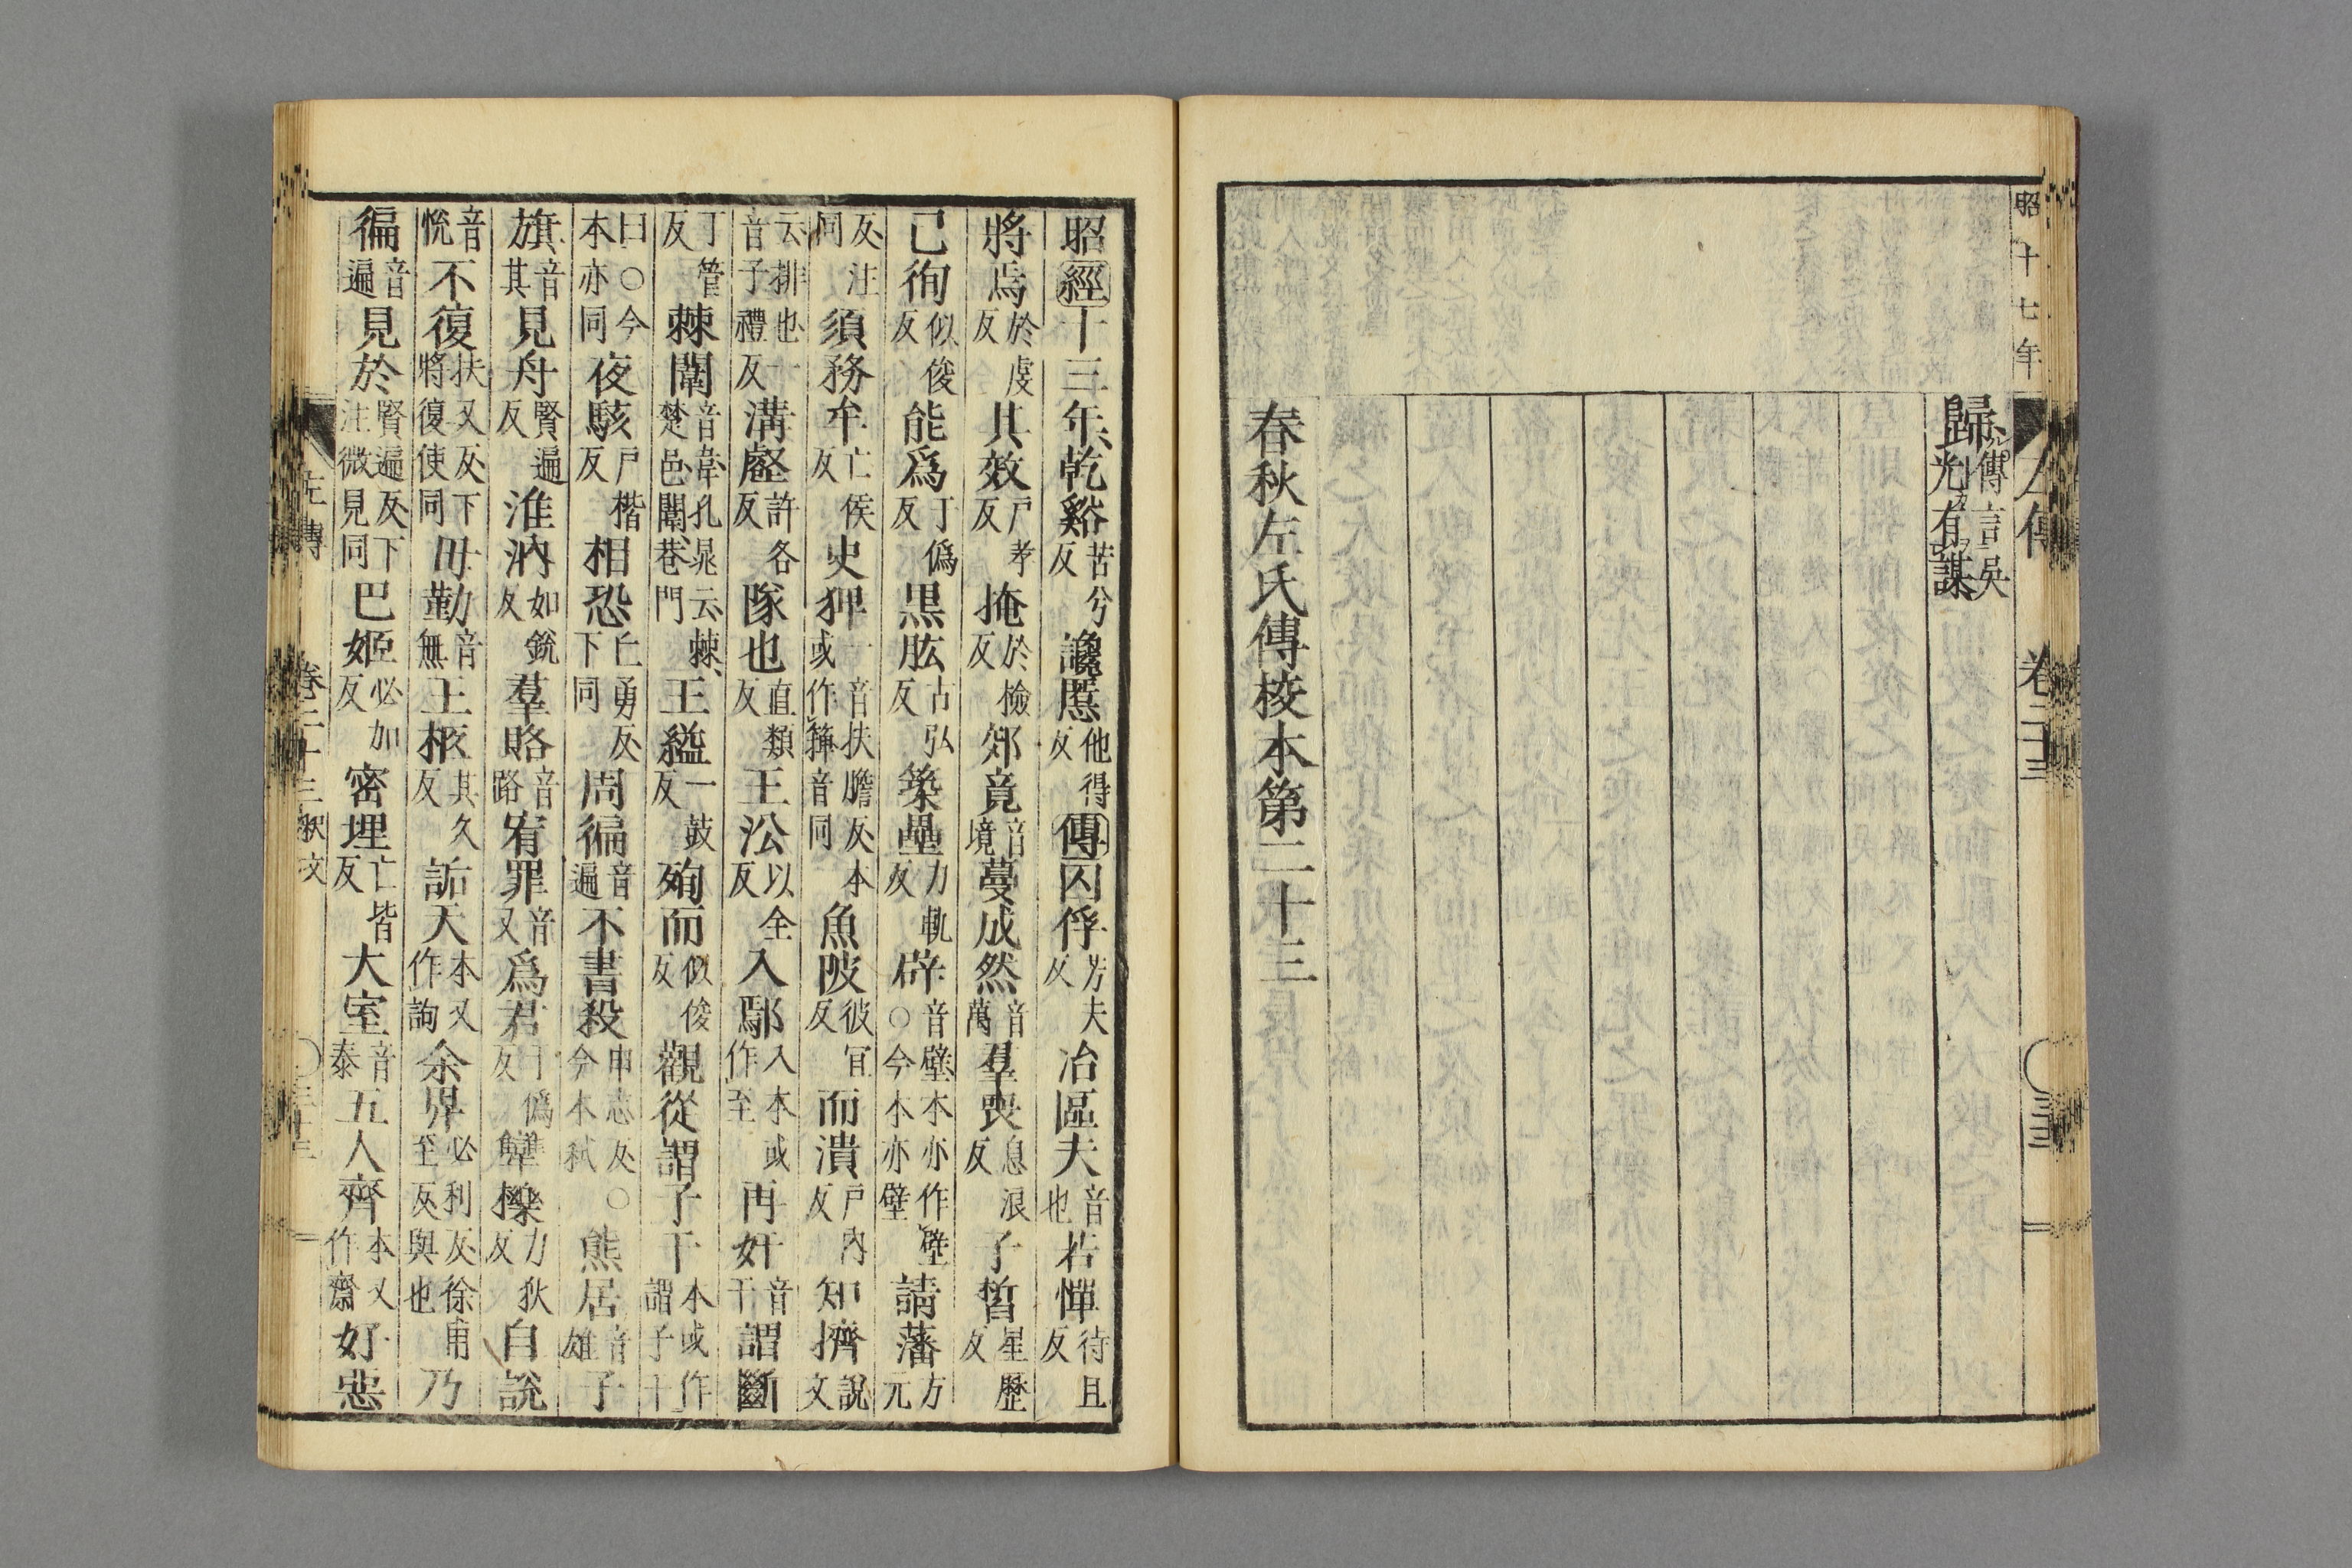 昭十七年
左傳　卷二十三
歸傳言吳光有謀
春秋左氏傳校本第二十三
昭經十三年乾谿苦兮反讒慝他得反傳囚俘芳夫反冶區夫音也若憚待旦反
將焉於虔反其效戶孝反掩於檢反郊竟音境蔓成然音萬羣喪息浪反子晳星歷反
己徇似俊反能爲丁僞反黒肱古弘反築壘力軌反辟音壁本亦作壁○今本亦壁請藩方元
反注同須務牟亡侯反史猈一音扶䏼反本或作䇑音同魚陂彼宜反而潰戶內反知擠說文
云排也一音子禮反溝壑許各反隊也直類反王㳂以全反入鄢入本或作至再奸音干謂斷
丁管反棘闈音韋孔晁云棘楚邑闈巷門王縊一鼓反殉而似俊反觀從謂子干本或作謂子十
曰○今本亦同夜駭戶楷反相恐丘勇反下同周徧音遍不書殺申志反○今本弒熊居音雄子
旗音其見舟賢遍反淮汭如銳反羣賂音路宥罪音又爲君于僞反犨櫟力狄反自說
音悅不復扶又反下將復使同毋勤音無王柩其久反詬天本又作詢余畀必利反徐甫至反與也乃
徧音遍見於賢遍反下注微見同巴姬必加反密埋亡皆反大室音泰五人齊本又作齋好惡
左傳　卷二十三釈文